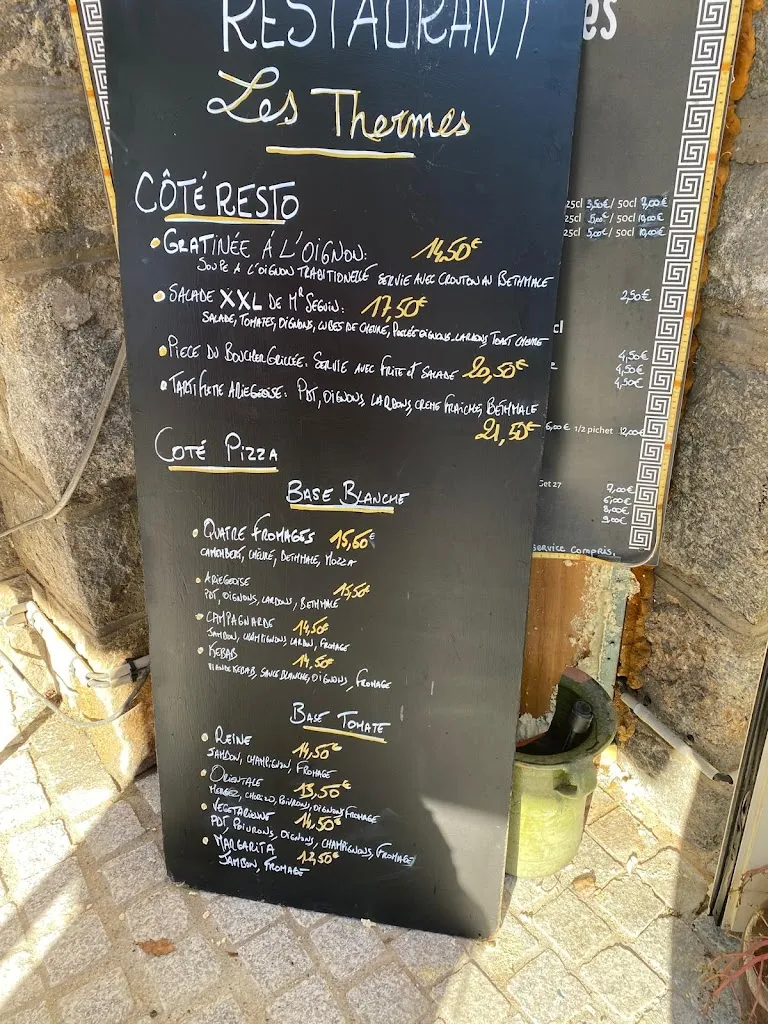 RESTAURANT
Les Thermes
CÔTÉ RESTO
GRATINÉE À L'OIGNON: 14,50€
SOUPE A L'OIGNON TRADITIONELLE SERVIE AVEC CROUTON AU BETHMALE
SALADE XXL DE Mr SEGUIN: 17,50€
SALADE, TOMATES, OIGNONS, CUBES DE CHEVRE, POELÉE OIGNONS, LARDONS, TOAST CHEVRE
PIECE DU BOUCHER GRILLÉE. SERVIE AVEC FRITE ET SALADE 20,50€
TARTIFLETTE ARIEGEOISE: PDT, OIGNONS, LARDONS, CREME FRAICHE, BETHMALE
21,50€
COTÉ PIZZA
BASE BLANCHE
QUATRE FROMAGES 15,50€
CAMEMBERT, CHEVRE, BETHMALE, MOZZA
ARIEGEOISE 15,50€
PDT, OIGNONS, LARDONS, BETHMALE
CAMPAGNARDE 14,50€
JAMBON, CHAMPIGNONS LARDON, FROMAGE
KEBAB 14,50€
VIANDE KEBAB, SAUCE BLANCHE, OIGNONS, FROMAGE
BASE TOMATE
REINE 14,50€
JAMBON, CHAMPIGNON, FROMAGE
ORIENTALE 13,50€
MERGEZ, CHORIZO, POIVRON, OIGNONS FROMAGE
VEGETARIENNE 14,50€
PDT, POIVRONS, OIGNONS, CHAMPIGNONS, FROMAGE
MARGARITA 12,50€
JAMBON, FROMAGE
es
25cl 3,50€ / 50cl 7,00€
25cl 5,00€ / 50cl 10,00€
25cl 5,00€ / 50cl 10,00€
2,50€
cl
4,50€
4,50€
4,50€
6,00€ 1/2 pichet 12,00€
Get 27 7,00€
6,00€
8,00€
9,00€
service compris.